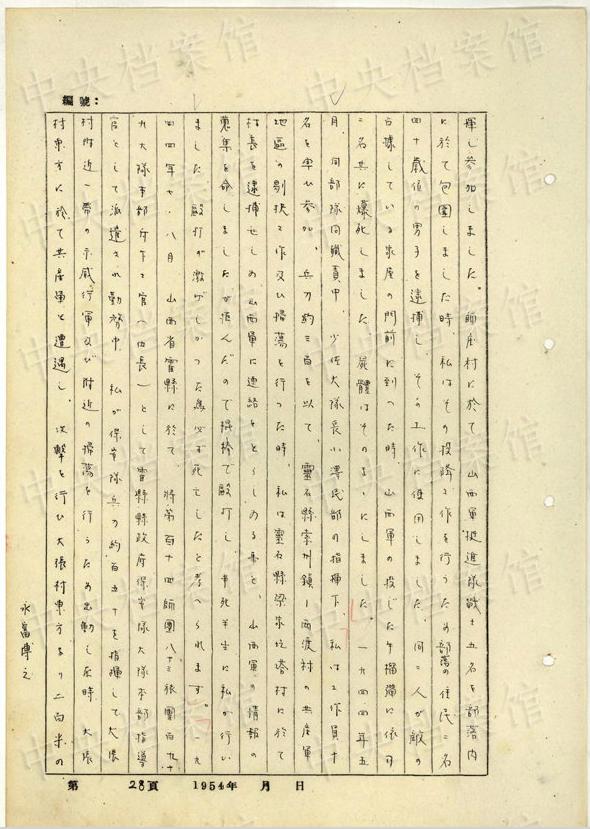 編號：
揮し参加しました。師庄村に於て山西軍挺進隊敵十五名を部落内
に於て包圍しました時、私はその投降工作を行うため部落の住民二名
四十歳位の男子を逮捕し、その工作に使用しました。同二人が敵の
占據している家屋の門前に到った時、山西軍の投じた手榴彈に依り
二名共に爆死しました。屍體はそのまゝにしました。一九四四年五
月、同部隊同職責中、少佐大隊長小澤民部の指揮下、私は工作員十
名を率ひ参加、兵力約三百を以て、靈石縣索州鎮ー西渡村の共産軍
地區の剔抉工作及ひ掃蕩を行った時、私は靈石縣梁家圪塔村に於て
村長を逮捕せしめ山西軍に連絡をとらしめる事と、山西軍の情報の
蒐集を命しましたが拒んだので棍棒で殴打し、半死半生に私が行い
ました。殴打が激げしかった為必ず死亡したと考へられます。一九
四四年七・八月 山西省霍縣に於て 将第百十四師團八十三旅團百九十
九大隊本部付下士官（伍長）として霍縣縣政府保安隊大隊本部指導
官として派遣され勤務中、私が保安隊兵力約百五十を指揮して大張
村附近一帯の示威行軍及び附近の掃蕩を行うため出動した時、大張
村東方に於て共産軍と遭遇し、攻撃を行ひ大張村東方より二百米の
永富博之
第 28頁 1954年 月 日
中央档案馆